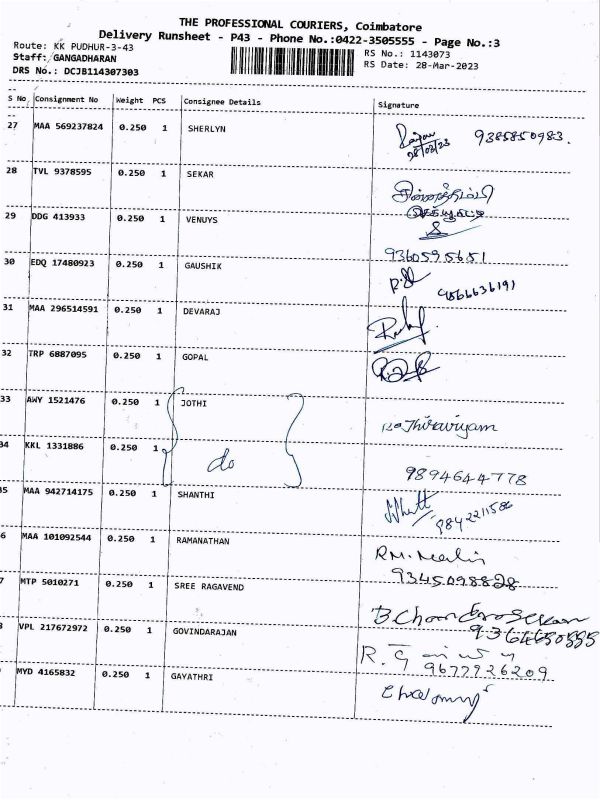 THE PROFESSIONAL COURIERS, Coimbatore
Delivery Runsheet - P43 - Phone No.:0422-3505555 - Page No.:3
Route: KK PUDHUR-3-43
RS No.: 1143073
Staff: GANGADHARAN
RS Date: 28-Mar-2023
DRS No.: DCJB114307303
S No Consignment No Weight PCS Consignee Details Signature
27 MAA 569237824 0.250 1 SHERLYN 9385850983.
28/03/23
28 TVL 9378595 0.250 1 SEKAR
29 DDG 413933 0.250 1 VENUYS
9360595651
30 EDQ 17480923 0.250 1 GAUSHIK
9566636191
31 MAA 296514591 0.250 1 DEVARAJ
32 TRP 6887095 0.250 1 GOPAL
33 AWY 1521476 0.250 1 JOTHI
34 KKL 1331886 0.250 1 do
9894644778
35 MAA 942714175 0.250 1 SHANTHI
9842211586
6 MAA 101092544 0.250 1 RAMANATHAN
9345098828
7 MTP 5010271 0.250 1 SREE RAGAVEND
B.Chandrasekaran
8 VPL 217672972 0.250 1 GOVINDARAJAN
9677926209
9 MYD 4165832 0.250 1 GAYATHRI